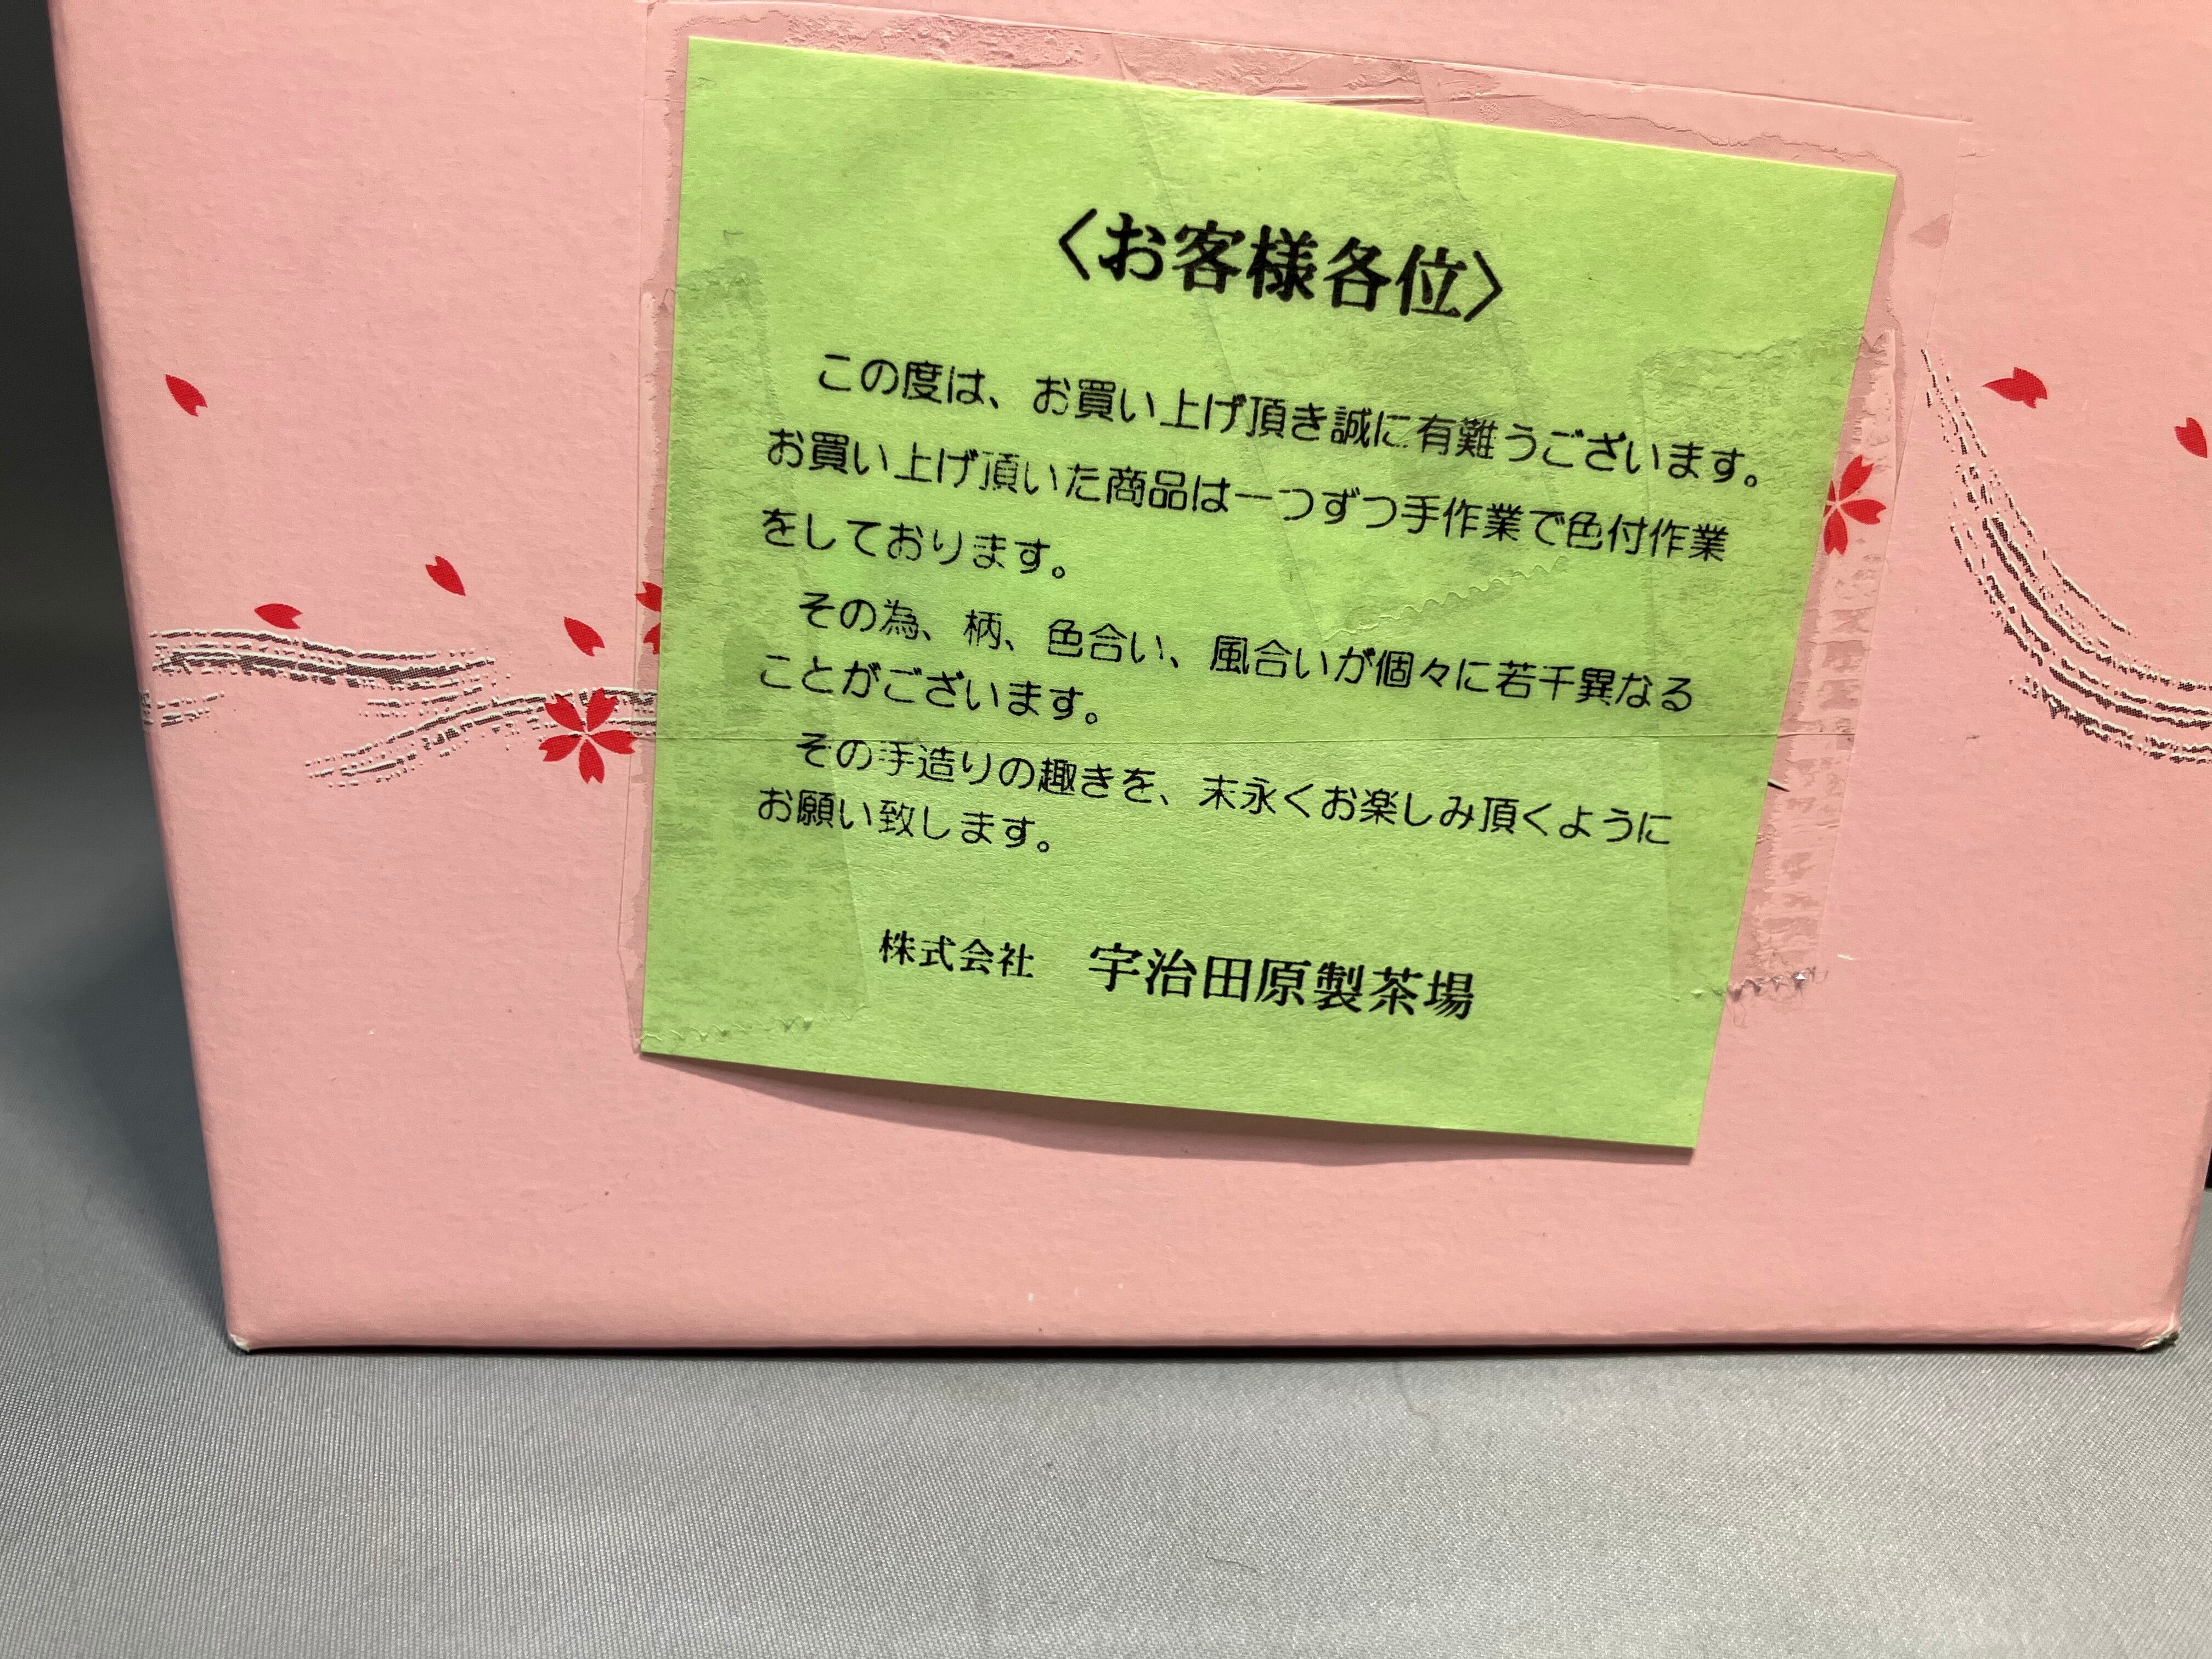 〈お客様各位〉
この度は、お買い上げ頂き誠に有難うございます。
お買い上げ頂いた商品は一つずつ手作業で色付作業
をしております。
その為、柄、色合い、風合いが個々に若干異なる
ことがございます。
その手造りの趣きを、末永くお楽しみ頂くように
お願い致します。
株式会社　宇治田原製茶場